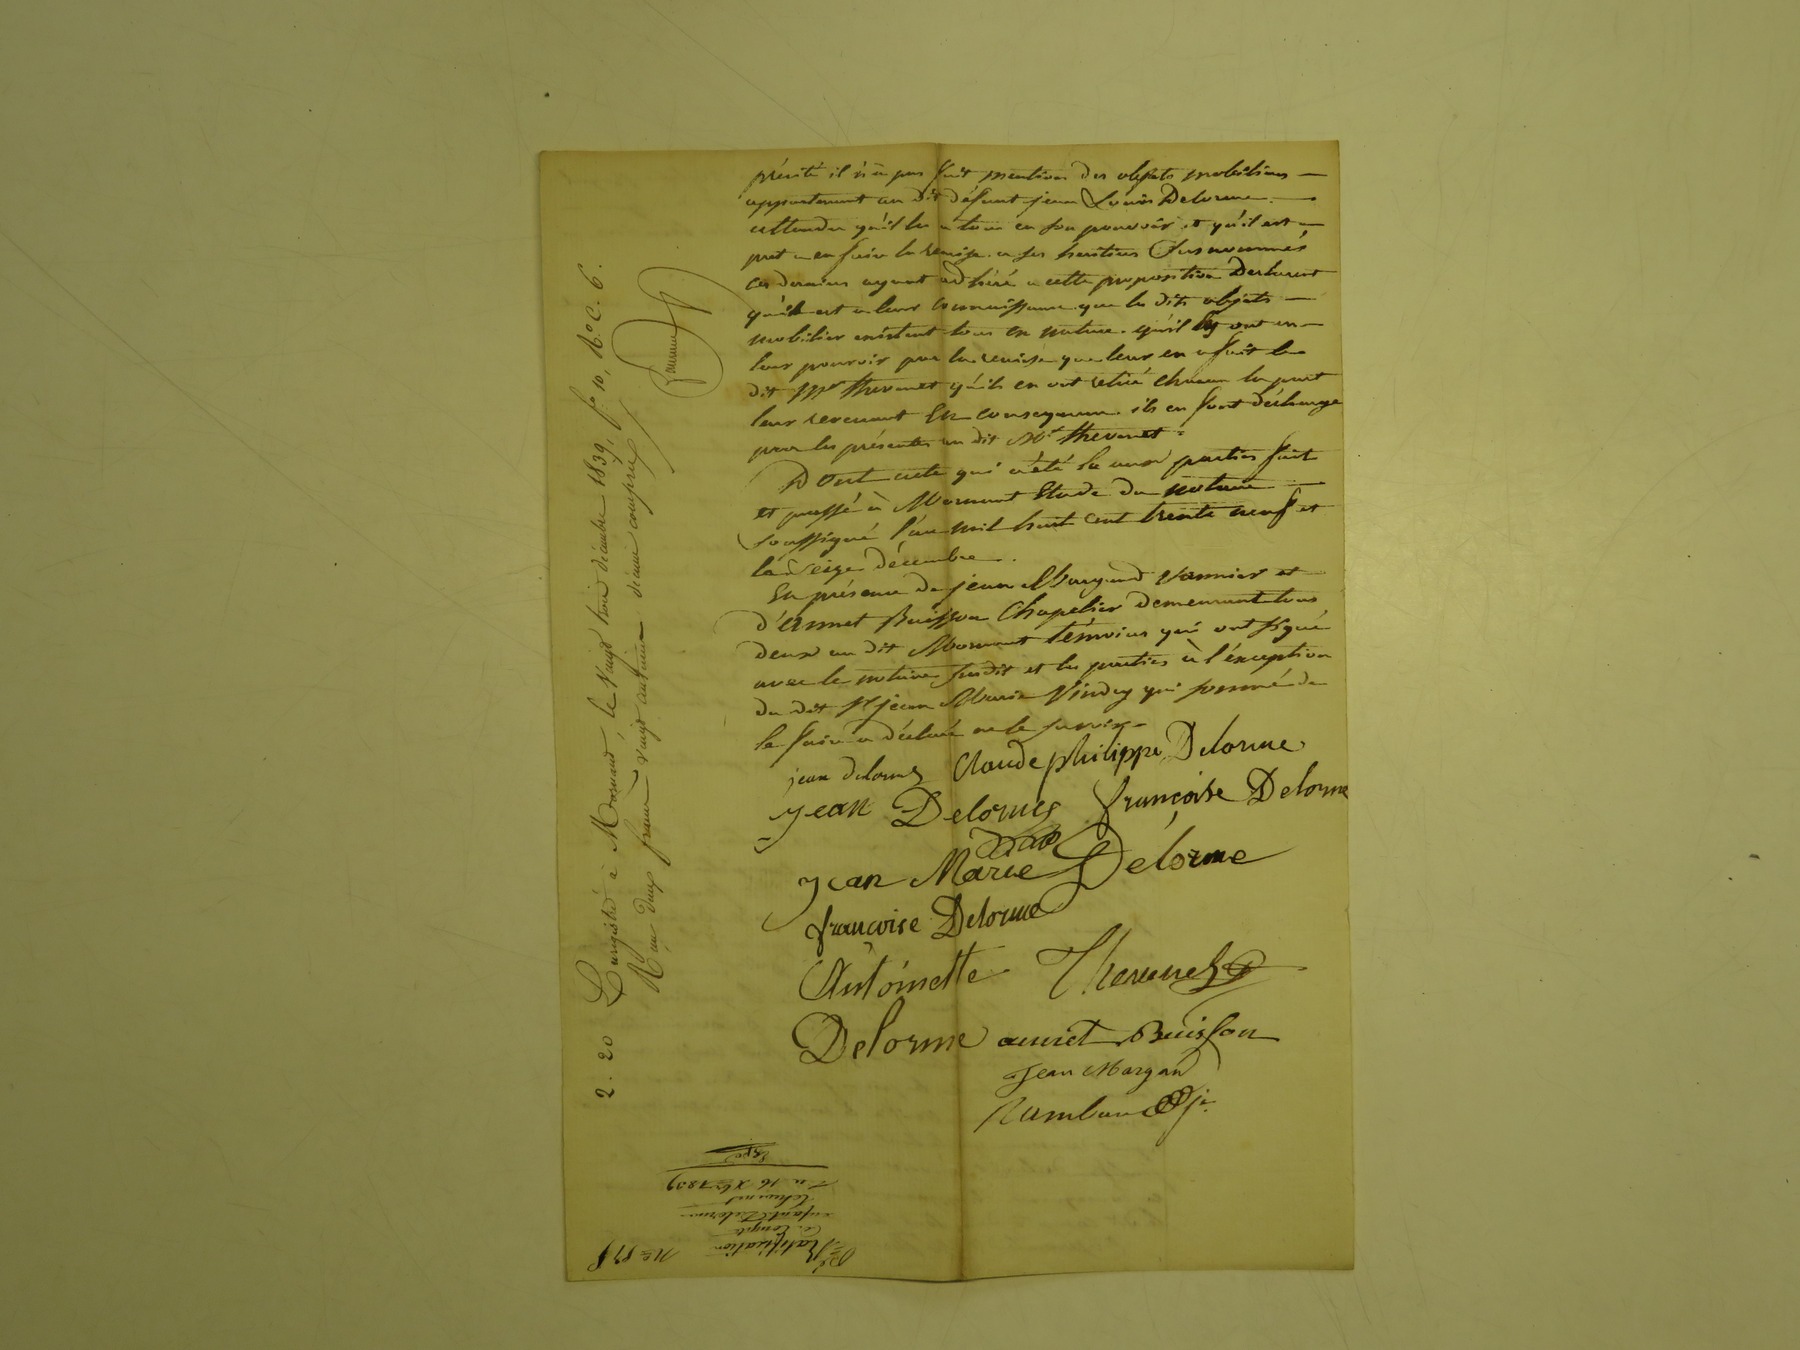 précité il n'a pas fait mention des objets mobiliers —
appartenant au dit défunt jean Louis Delorme. —
attendu qu'il les a tous en son pouvoir et qu'il est —
pret a en faire la remise a ses héritiers susnommés
ces derniers ayant adhéré a cette proposition Declarent
qu'il est a leur connaissance que les dits objets —
mobilier existent tous en nature. qu'il les ont en —
leur pouvoir par la remise que leur en a fait le
dit Mr thevenet qu'ils en ont retiré chacun la part
leur revenant En consequence ils en font décharge
par les présentes au dit Mr. thevenet =
Dont acte qui a été lu aux parties fait
et passé à Mornant Etude du notaire —
soussigné l'an mil huit cent trente neuf et
le seize décembre.
En présence de jean Margand vannier et
d'annet Buisson Chapelier demeurant tous
deux au dit Mornant témoins qui ont signé
avec le notaire susdit et les parties à l'éxception
du dit Sr jean Marie Vindry qui sommé de
le faire a déclaré ne le savoir —
jean delorme Claude philippe Delorme
jean Delorme françoise Delorme
jean Marie Delorme
francoise Delorme
Antoinette Thevenet
Delorme annet Buisson
Jean Margan
Rambaud je.
2. 20 Enregistré à Mornant, le vingt trois décembre 1839, f.º 10, R.º C. 6.
Reçu deux francs vingt centimes décime compris
Nº 578
Ratification
de Compte
enfants Delorme
thevenet
Du 16 Xbre 1839
Exp.